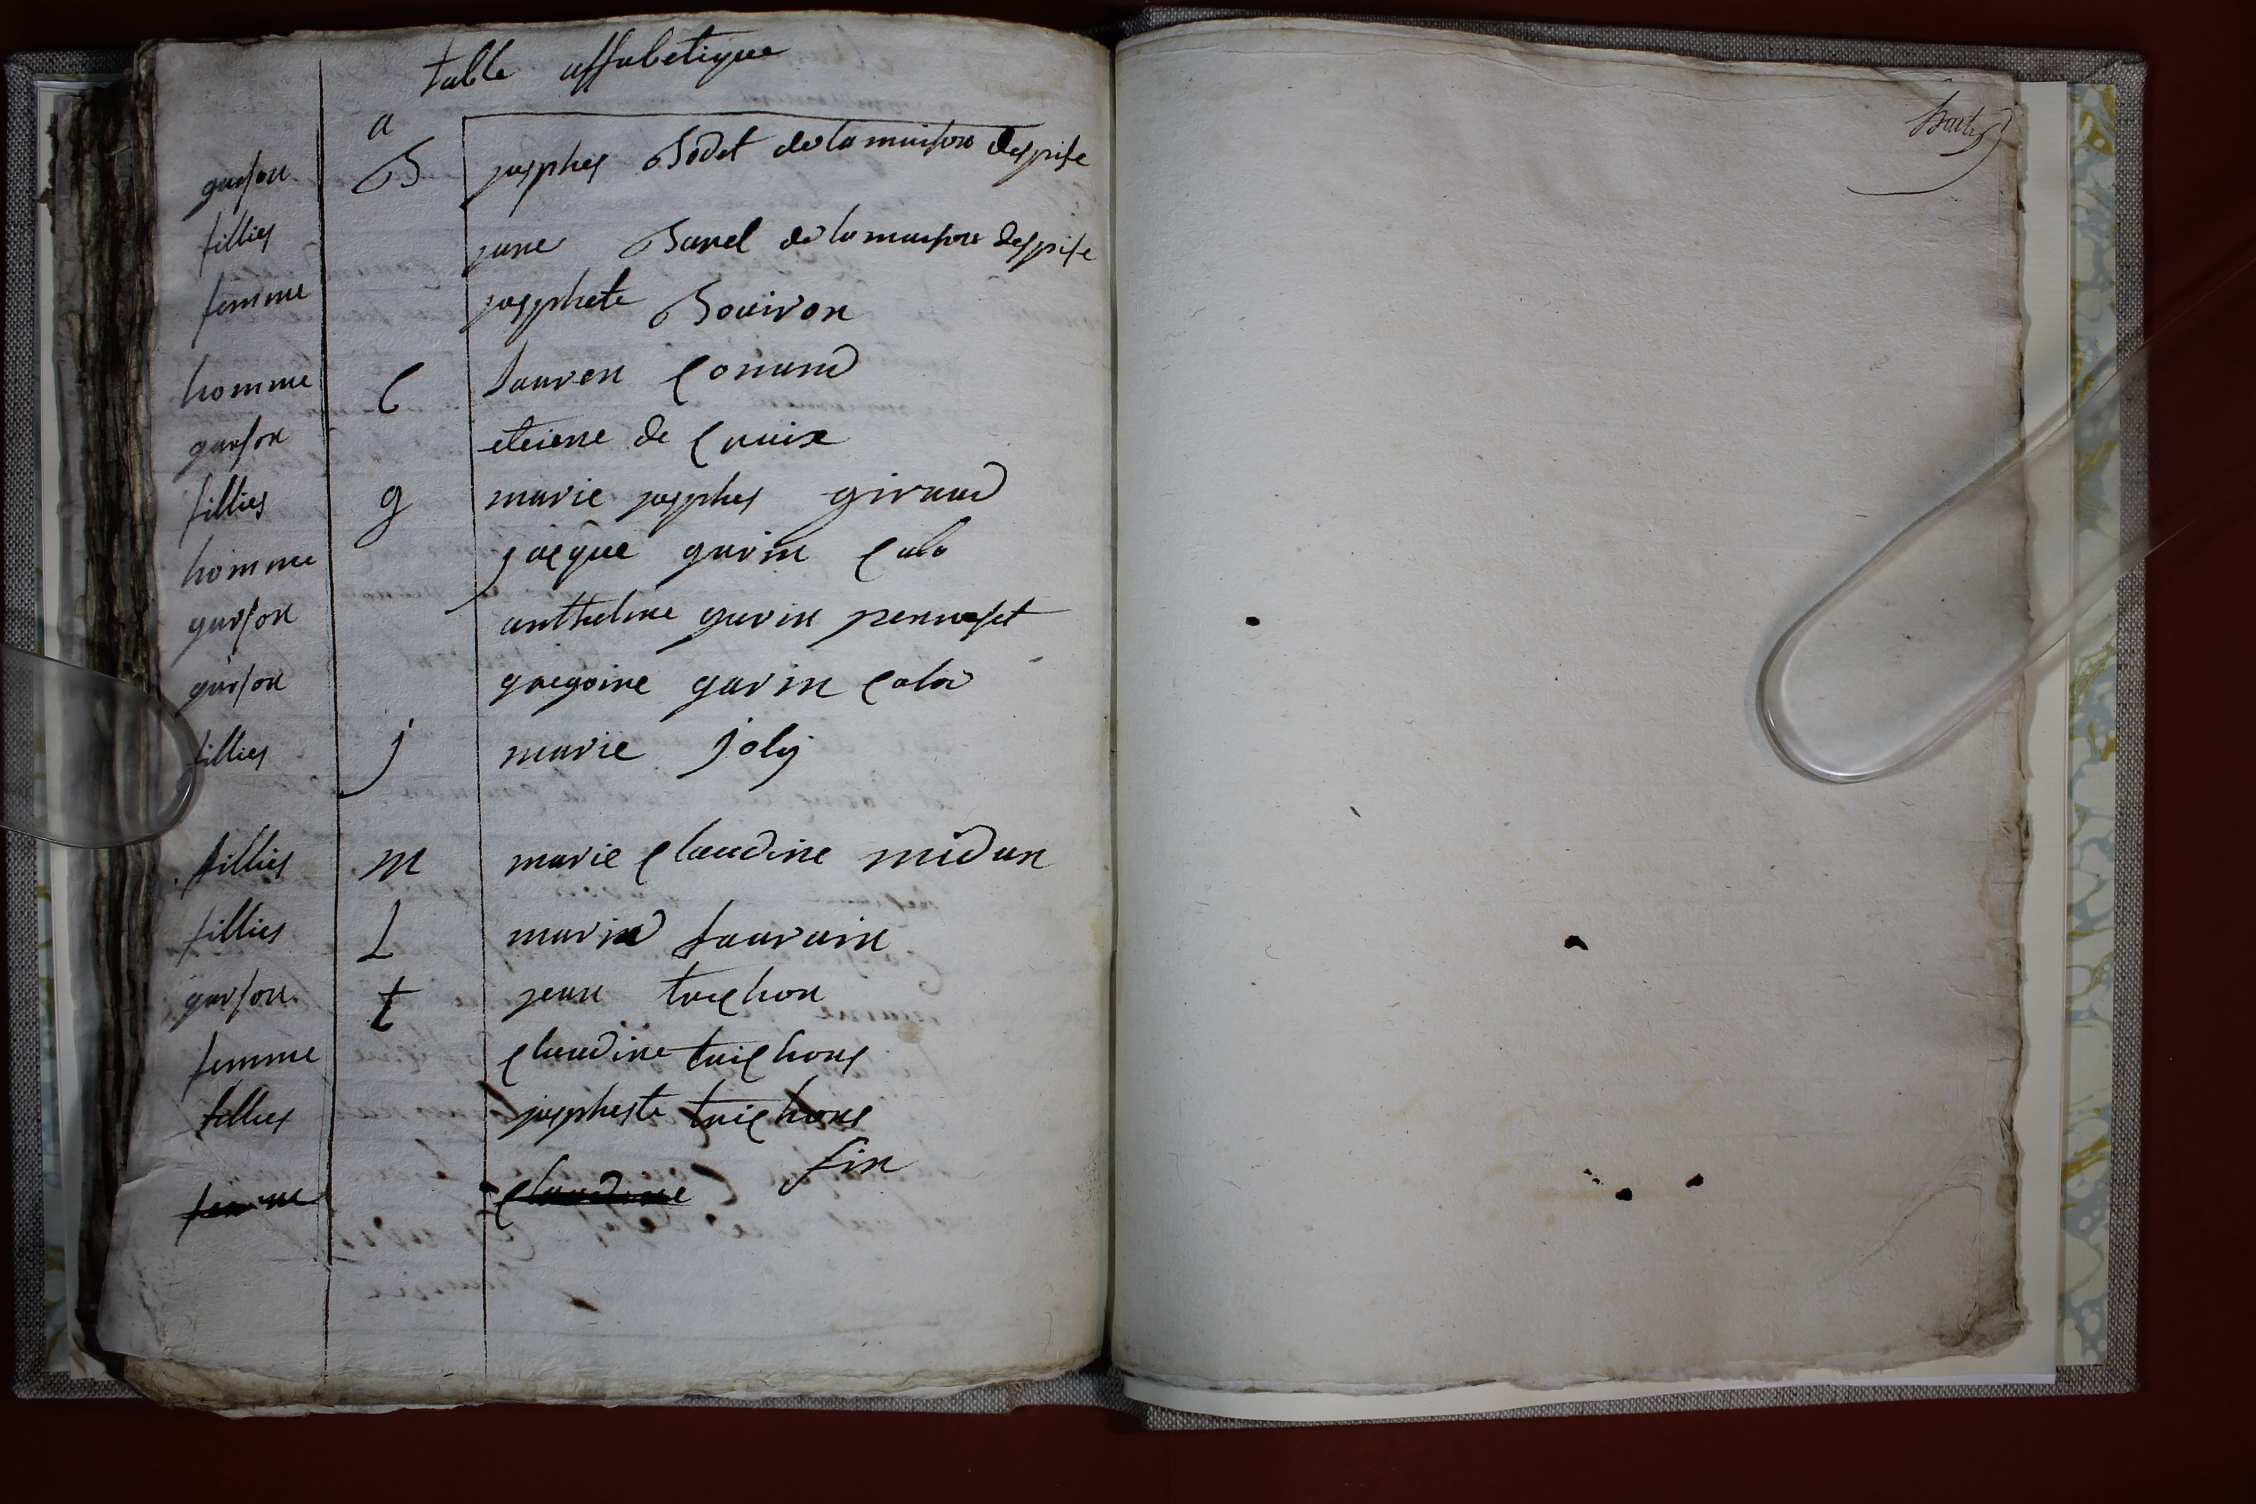 table affabetique
a
garson B josphes Bodet de la maison despise
fillies jane Barel de la maison despise
femme josphete Bouivon
homme C Lauren Conand
garson etiene de Croix
fillies g marie josphes giraud
homme jacque gavin Cala
garson anthelme gavin pernoset
garson gregoire gavin Cala
fillies j marie joly
fillies m marie Claudine midan
fillies L marie Laurain
garson t jean trichon
femme Claudine trichons
fillies jospheste trichons
fin
femme Claudine